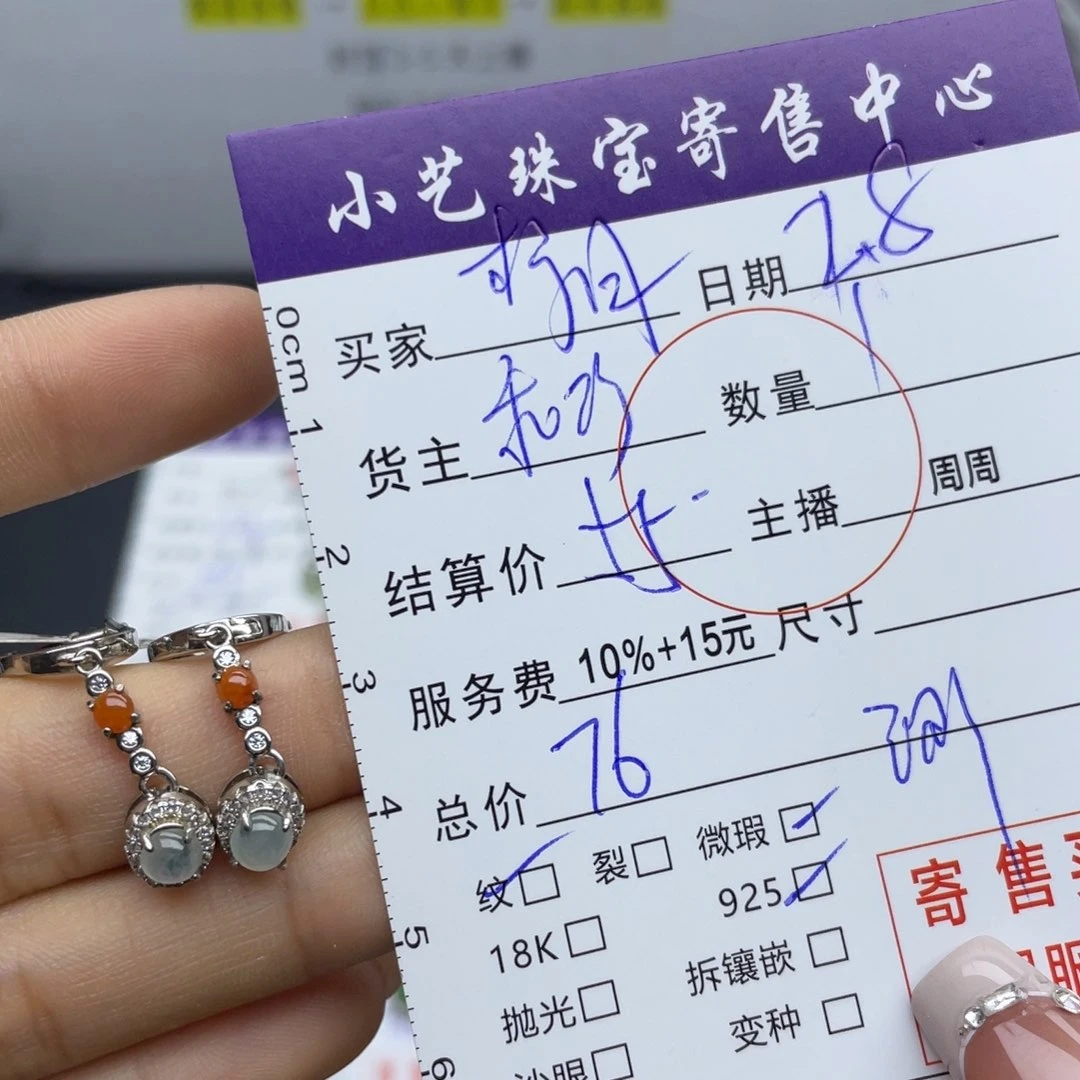 小艺珠宝寄售中心
买家 日期 7.8
货主 数量
结算价 主播 周周
服务费 10%+15元 尺寸
总价 76
纹 裂 微瑕
18K 925
抛光 拆镶嵌
沙眼 变种
寄售
0cm 1 2 3 4 5 6